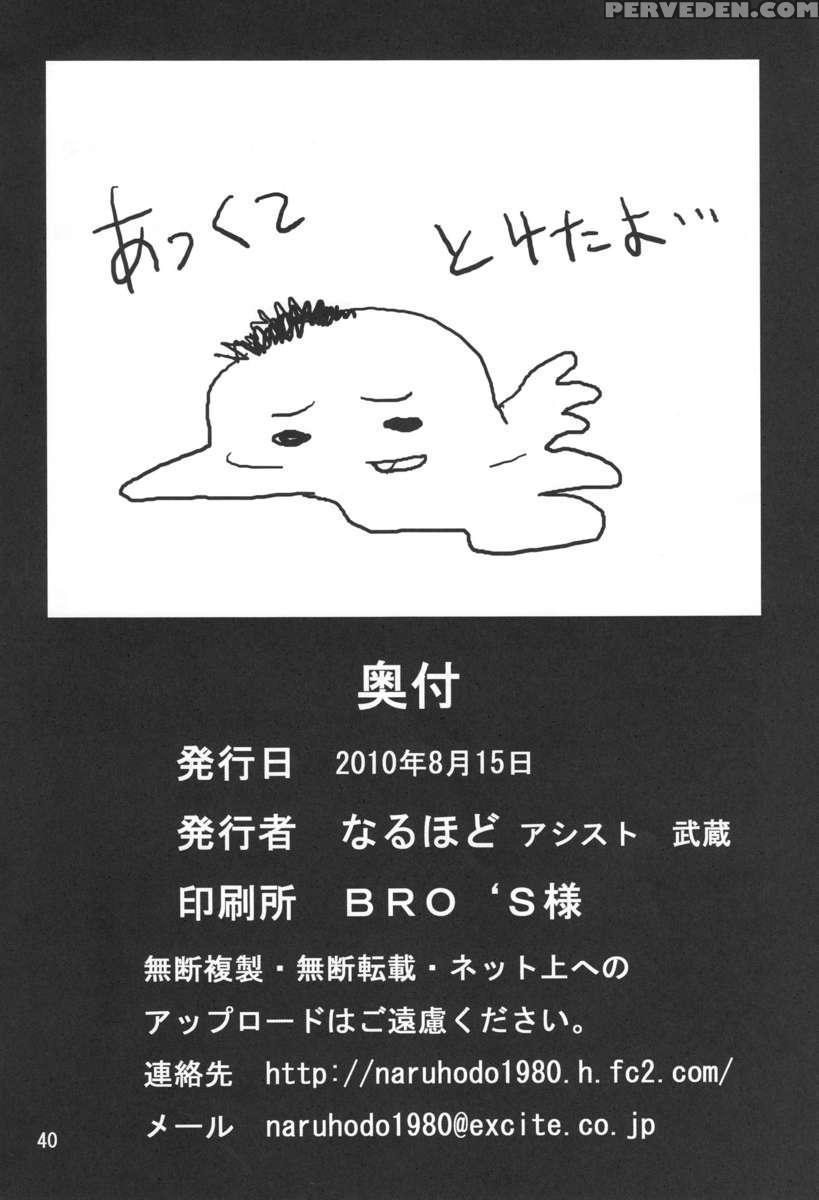 PERVEDEN.COM
あつくて とけたよ…
奥付
発行日 2010年8月15日
発行者 なるほど アシスト 武蔵
印刷所 ＢＲＯ ‘Ｓ様
無断複製・無断転載・ネット上への
アップロードはご遠慮ください。
連絡先 http://naruhodo1980.h.fc2.com/
メール naruhodo1980@excite.co.jp
40